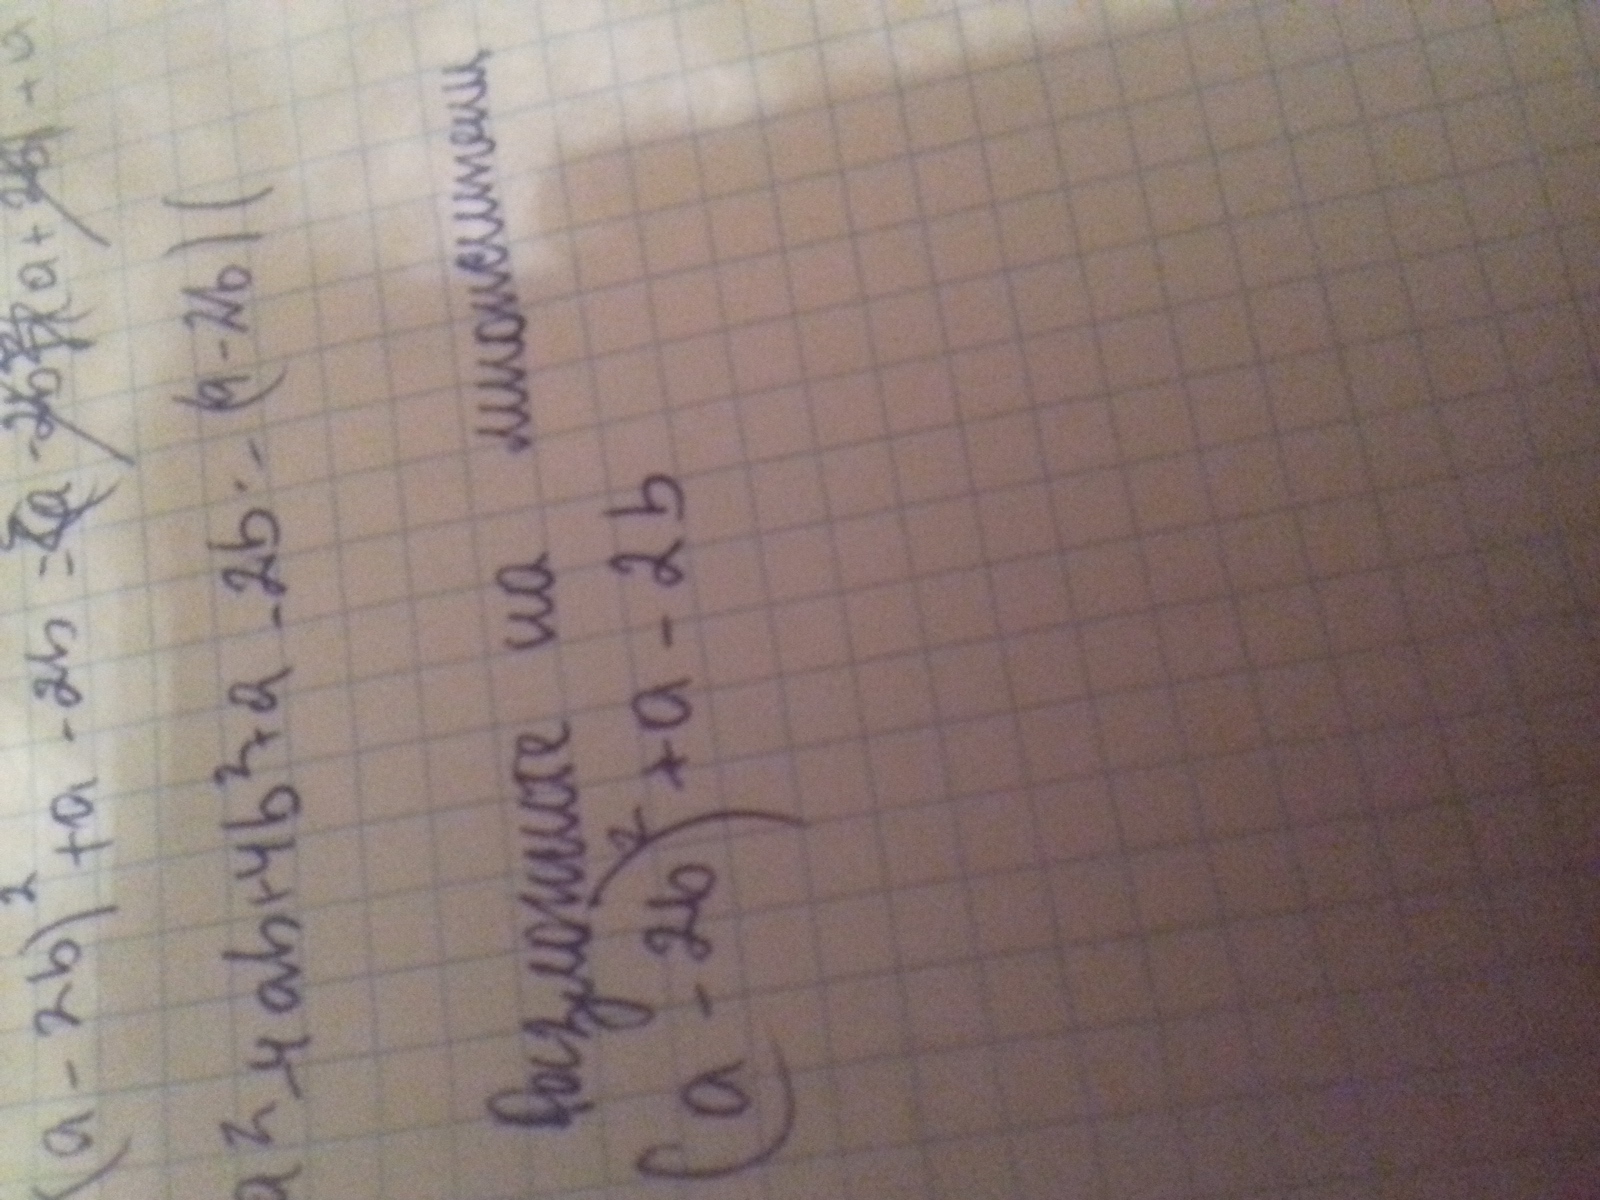 (a - 2b)² + a - 2b = (a + 2b) + a
a² - 4ab + 4b² + a - 2b = (a - 2b) (
Разложите на множители
(a - 2b)² + a - 2b